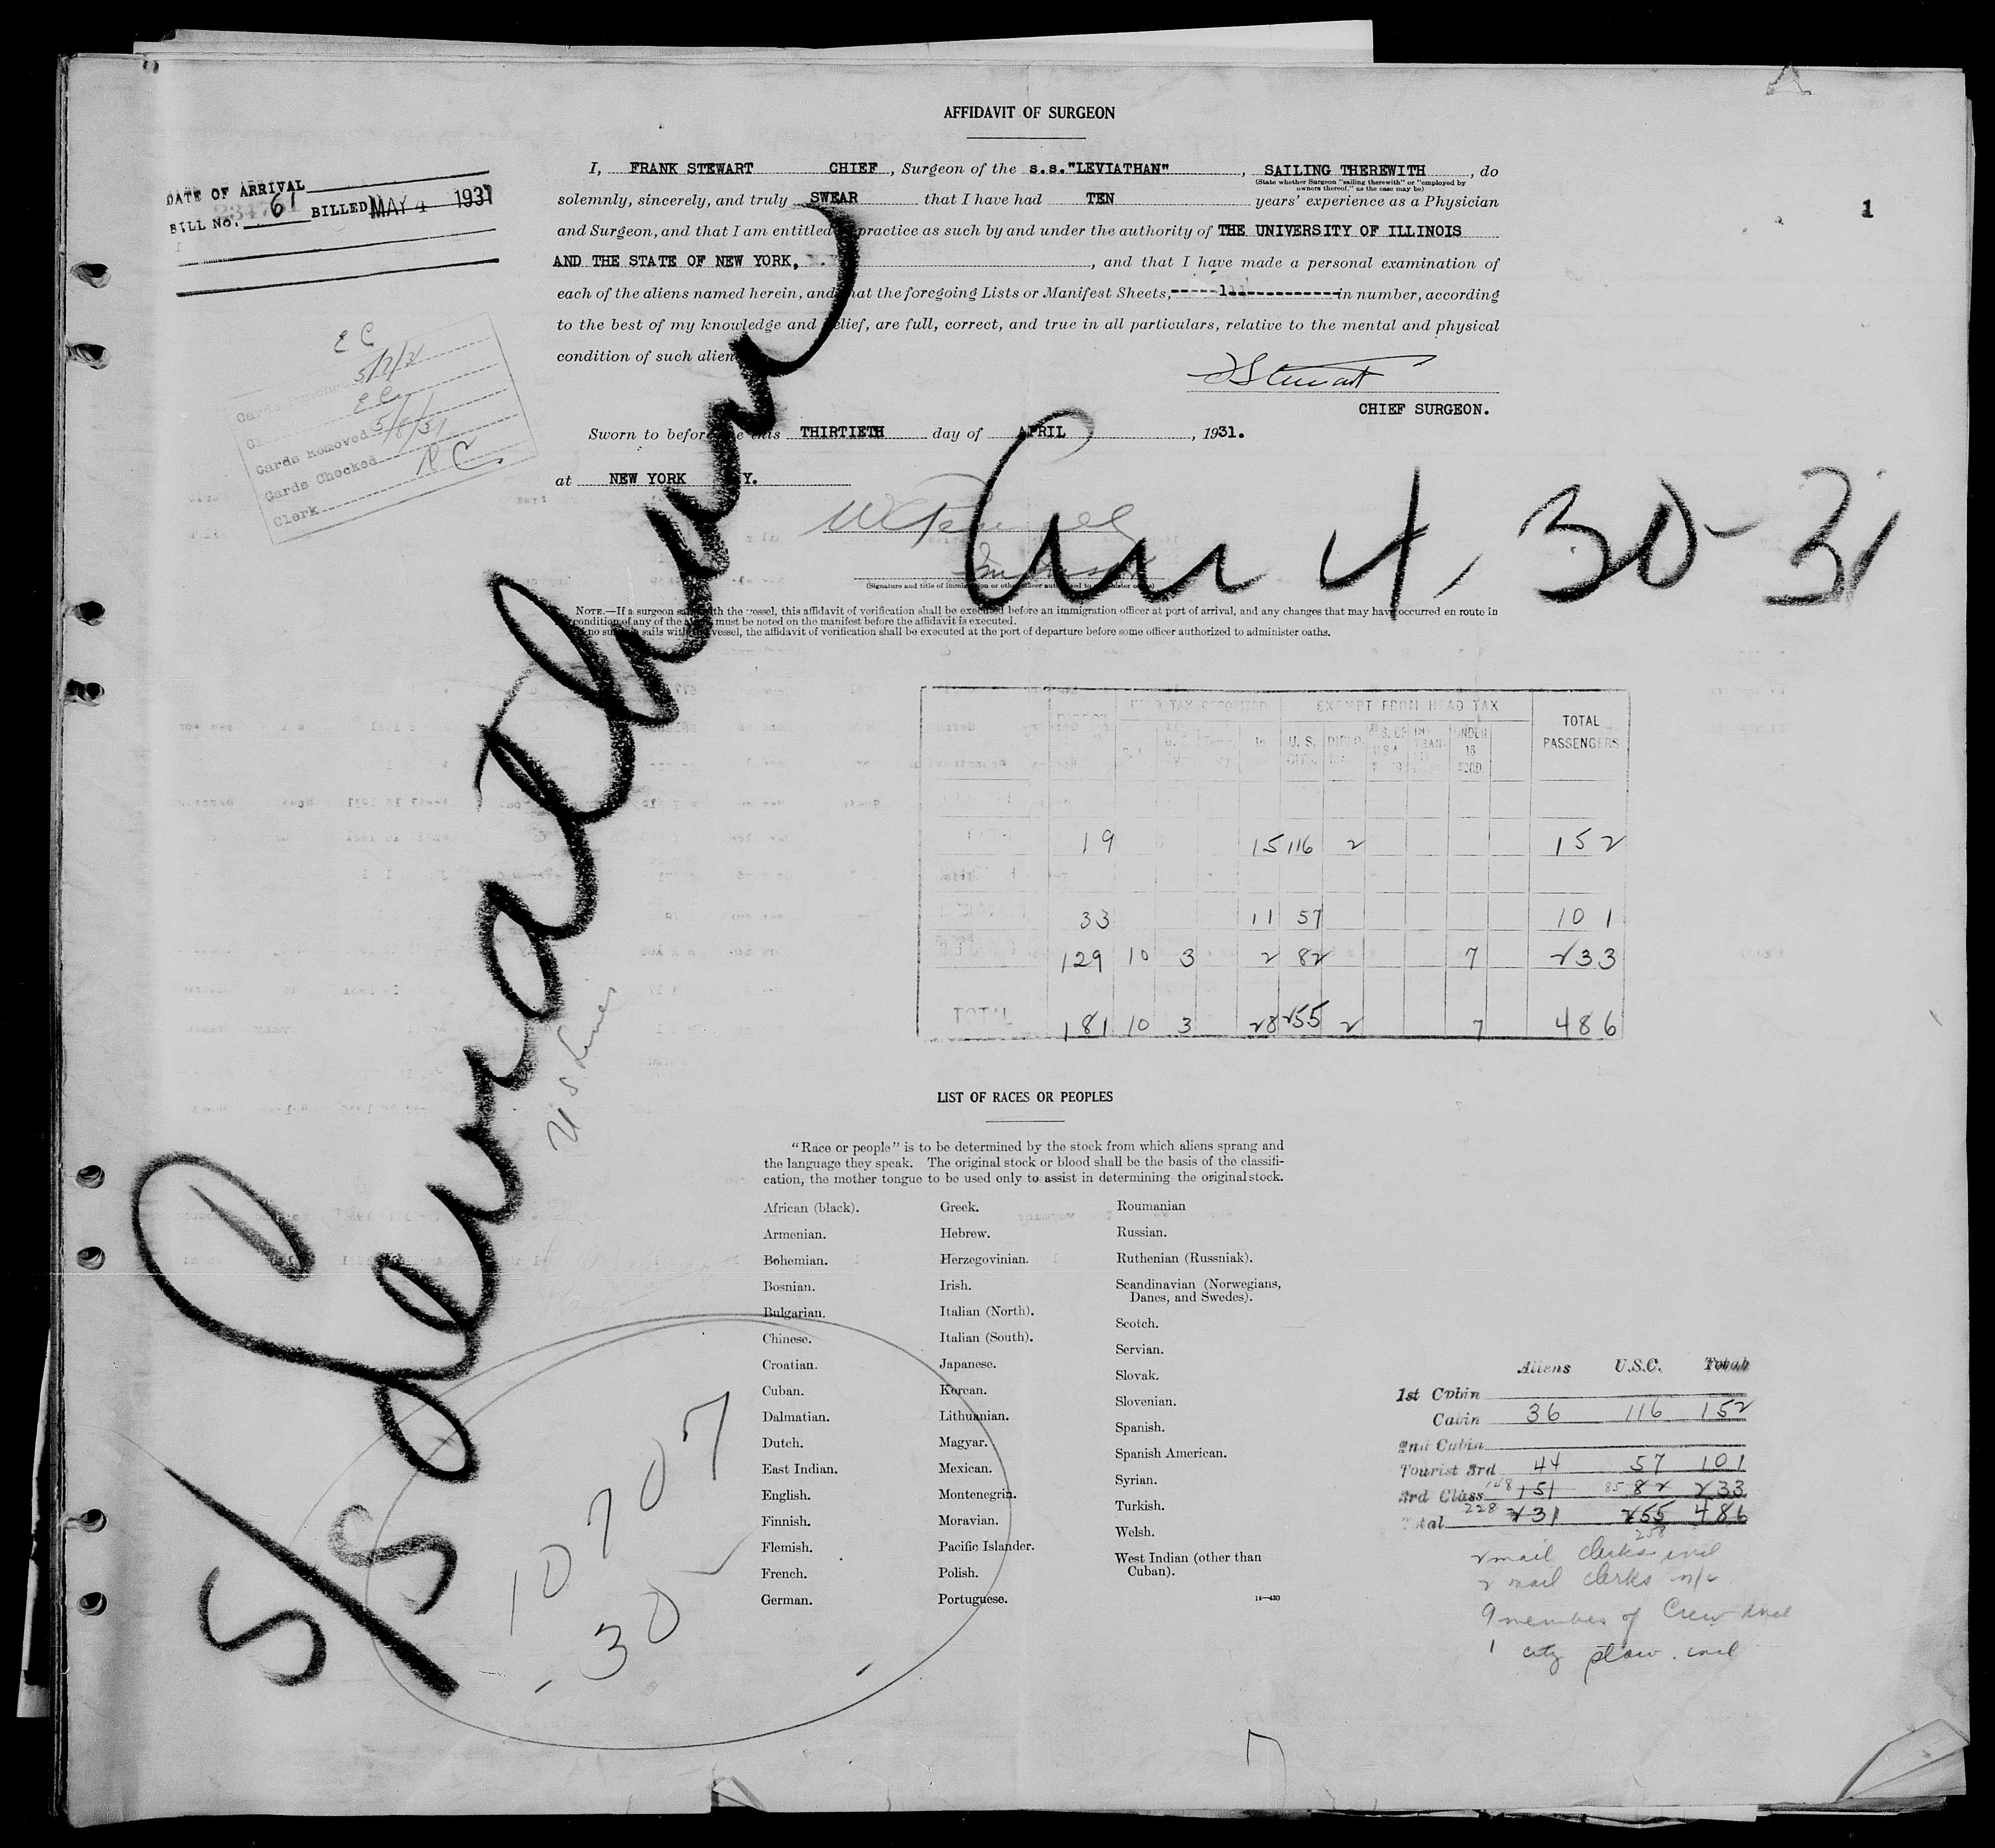 AFFIDAVIT OF SURGEON
I, FRANK STEWART CHIEF, Surgeon of the s.s."LEVIATHAN", SAILING THEREWITH, do
(State whether Surgeon "sailing therewith" or "employed by owners thereof," as the case may be)
solemnly, sincerely, and truly SWEAR that I have had TEN years' experience as a Physician
and Surgeon, and that I am entitled practice as such by and under the authority of THE UNIVERSITY OF ILLINOIS
AND THE STATE OF NEW YORK, , and that I have made a personal examination of
each of the aliens named herein, and that the foregoing Lists or Manifest Sheets, -----1------------ in number, according
to the best of my knowledge and belief, are full, correct, and true in all particulars, relative to the mental and physical
condition of such alien
F Stewart
CHIEF SURGEON.
Sworn to before me this THIRTIETH day of APRIL, 1931.
at NEW YORK Y.
(Signature and title of immigration or other officer authorized to administer oaths)
NOTE.—If a surgeon sails with the vessel, this affidavit of verification shall be executed before an immigration officer at port of arrival, and any changes that may have occurred en route in
condition of any of the aliens must be noted on the manifest before the affidavit is executed.
If no surgeon sails with the vessel, the affidavit of verification shall be executed at the port of departure before some officer authorized to administer oaths.
DATE OF ARRIVAL
BILL No. 61 BILLED MAY 4 1931
E C
5/7/31
Cards Removed 5/8/31
Cards Checked
Clerk R C
1
Arr 4, 30-31
S/S Leviathan
U S Lines
HEAD TAX DEPOSITED EXEMPT FROM HEAD TAX TOTAL PASSENGERS
U. S. UNDER 16
19 15 116 2 152
33 11 57 101
129 10 3 2 82 7 233
181 10 3 28 255 2 7 486
LIST OF RACES OR PEOPLES
"Race or people" is to be determined by the stock from which aliens sprang and
the language they speak. The original stock or blood shall be the basis of the classifi-
cation, the mother tongue to be used only to assist in determining the original stock.
African (black).
Armenian.
Bohemian.
Bosnian.
Bulgarian.
Chinese.
Croatian.
Cuban.
Dalmatian.
Dutch.
East Indian.
English.
Finnish.
Flemish.
French.
German.
Greek.
Hebrew.
Herzegovinian.
Irish.
Italian (North).
Italian (South).
Japanese.
Korean.
Lithuanian.
Magyar.
Mexican.
Montenegrin.
Moravian.
Pacific Islander.
Polish.
Portuguese.
Roumanian
Russian.
Ruthenian (Russniak).
Scandinavian (Norwegians,
Danes, and Swedes).
Scotch.
Servian.
Slovak.
Slovenian.
Spanish.
Spanish American.
Syrian.
Turkish.
Welsh.
West Indian (other than
Cuban).
14—430
10707
- 30 -
Aliens U.S.C. Total
1st Cabin
Cabin 36 116 152
2nd Cabin
Tourist 3rd 44 57 101
3rd Class 148 151 85 82 233
Total 228 231 255 486
258
2 mail clerks incl
2 mail clerks n/c
9 members of Crew incl
1 city stow. incl